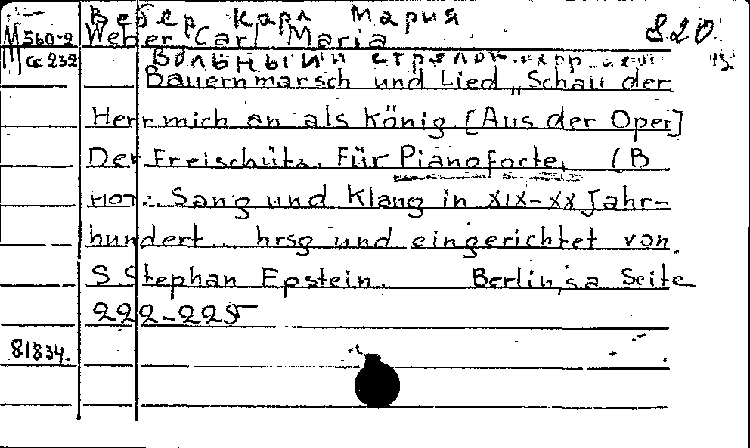 Вебер Карл Мария
М 560-2 Weber Carl Maria 820.
М Сс 232 Вольный стрелок.
Bauernmarsch und Lied „Schau der
Herr mich an als König. [Aus der Oper]
Der Freischütz. Für Pianoforte, (В
нот.: Sang und Klang in XIX-XX Jahr-
hundert... hrsg und eingerichtet von.
S. Stephan Epstein. Berlin, s a Seite
222-225
81834.